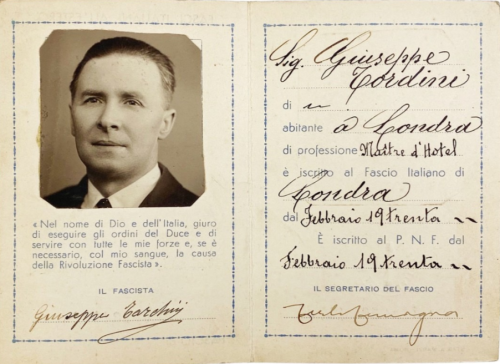 « Nel nome di Dio e dell'Italia, giuro
di eseguire gli ordini del Duce e di
servire con tutte le mie forze e, se è
necessario, col mio sangue, la causa
della Rivoluzione Fascista ».
IL FASCISTA
Giuseppe
Sig. Giuseppe
Tordini
di „
abitante a Londra
di professione Maître d'Hotel
è iscritto al Fascio Italiano di
Londra
dal Febbraio 19 trenta „
È iscritto al P. N. F. dal
Febbraio 19 trenta „
IL SEGRETARIO DEL FASCIO